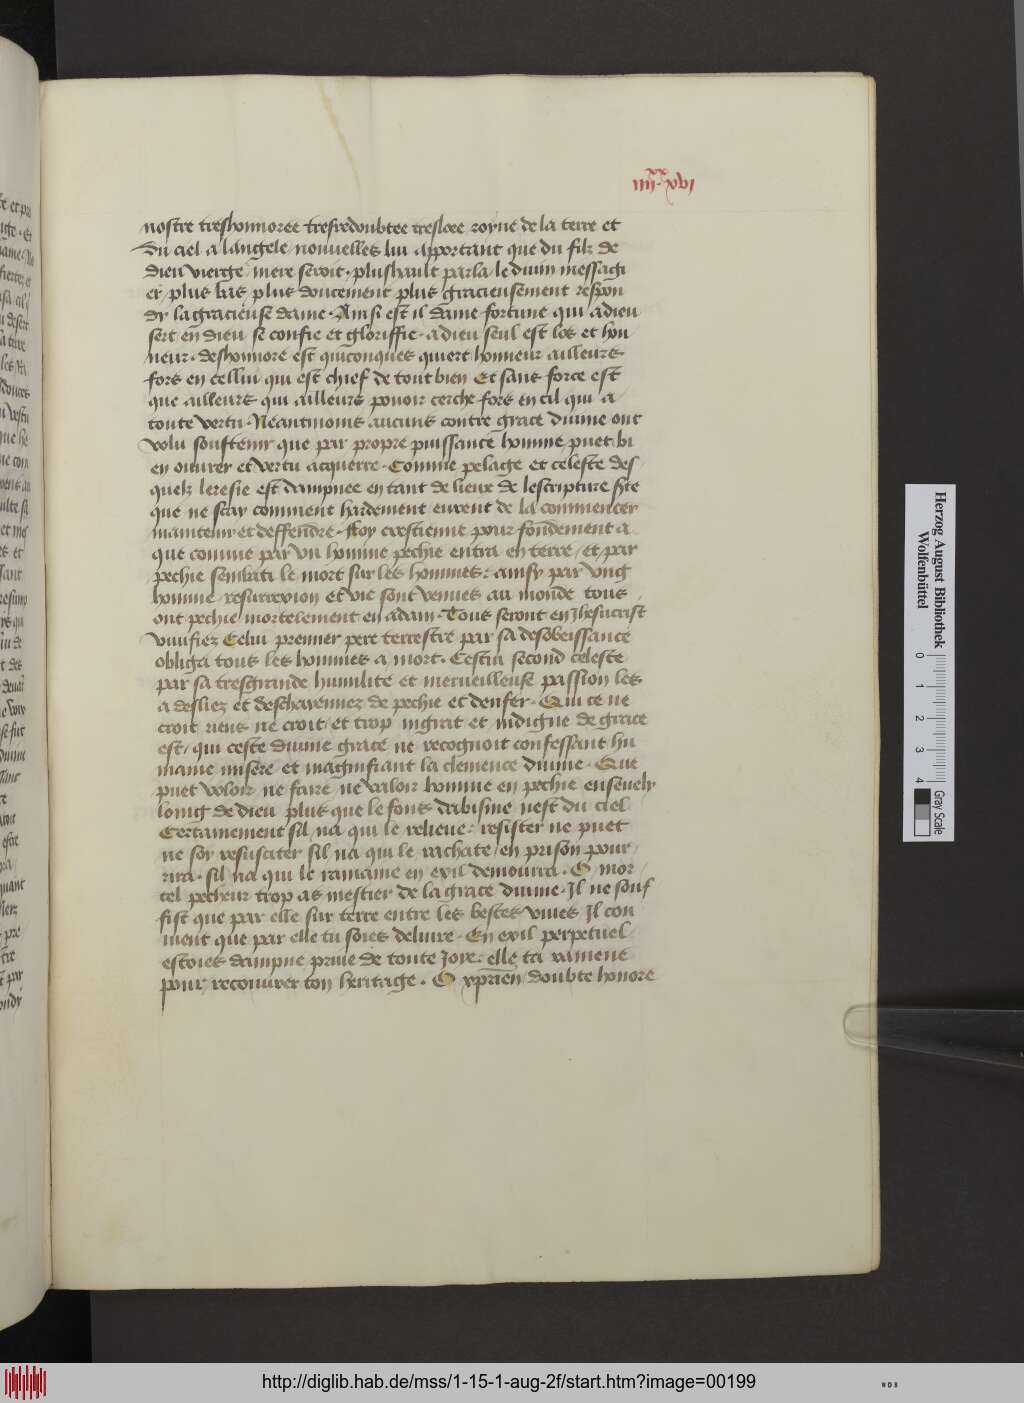 xx
iiii·xvi
nostre treshonnoree tresredoubtee tresloee royne de la terre et
du ciel a langele nouuelles lui apportant que du filz de
dieu vierge mere seroit · plushault parla le diuin messagi
er plus bas plus doucement plus gracieusement respon
dy la gracieuse dame · Ainsi est il dame fortune qui adieu
sert en dieu se confie et gloriffie · adieu seul est los et hon
neur · deshonnore est quiconques quiert honneur ailleurs
fors en cellui qui est chief de tout bien Et sans force est
que ailleurs qui ailleurs pouoir cerche fors en cil qui a
toute vertu · Neantmoins aucuns contre grace diuine ont
volu soustenir que par propre puissance homme puet bi
en ouurer et vertu acquerre · Comme pelage et celeste des
quelz leresie est dampnee en tant de lieux de lescripture ste
que ne scay comment hardement eurent de la commencer
maintenir et deffendre · ffoy crestienne pour fondement a
que comme par vn homme pechie entra en terre / et par
pechie sembati le mort sur les hommes : ainsy par vng
homme resurrexion et vie sont venues au monde tous
ont pechie mortelement en adam · Tous seront en Jhesucrist
viuifiez Celui premier pere terrestre par sa desobeissance
obliga tous les hommes a mort · Cestui second celeste
par sa tresgrande humilite et merueilleuse passion les
a desliez et deschayennez de pechie et denfer · Qui ce ne
croit riens ne croit / et trop ingrat et indigne de grace
est / qui ceste diuine grace ne recognoit confessant hu
maine misere et magnifiant la clemence diuine · Que
puet voloir ne faire ne valoir homme en pechie enseuely
loing de dieu plus que le fons dabisme nest du ciel
Certainement sil na qui le relieue : resister ne puet
ne soy resusciter sil na qui le rachate / en prison pour
rira · sil na qui le ramaine en exil demourra · O mor
tel pecheur trop as mestier de la grace diuine · Il ne souf
fist que par elle sur terre entre les bestes viues Il con
uient que par elle tu soies deliure · En exil perpetuel
estoies dampne priue de toute Joye : elle ta ramene
pour recouurer ton heritage · O xpraien doubte honore
Herzog August Bibliothek
Wolfenbüttel
0 1 2 3 4
Gray Scale
http://diglib.hab.de/mss/1-15-1-aug-2f/start.htm?image=00199
WDB